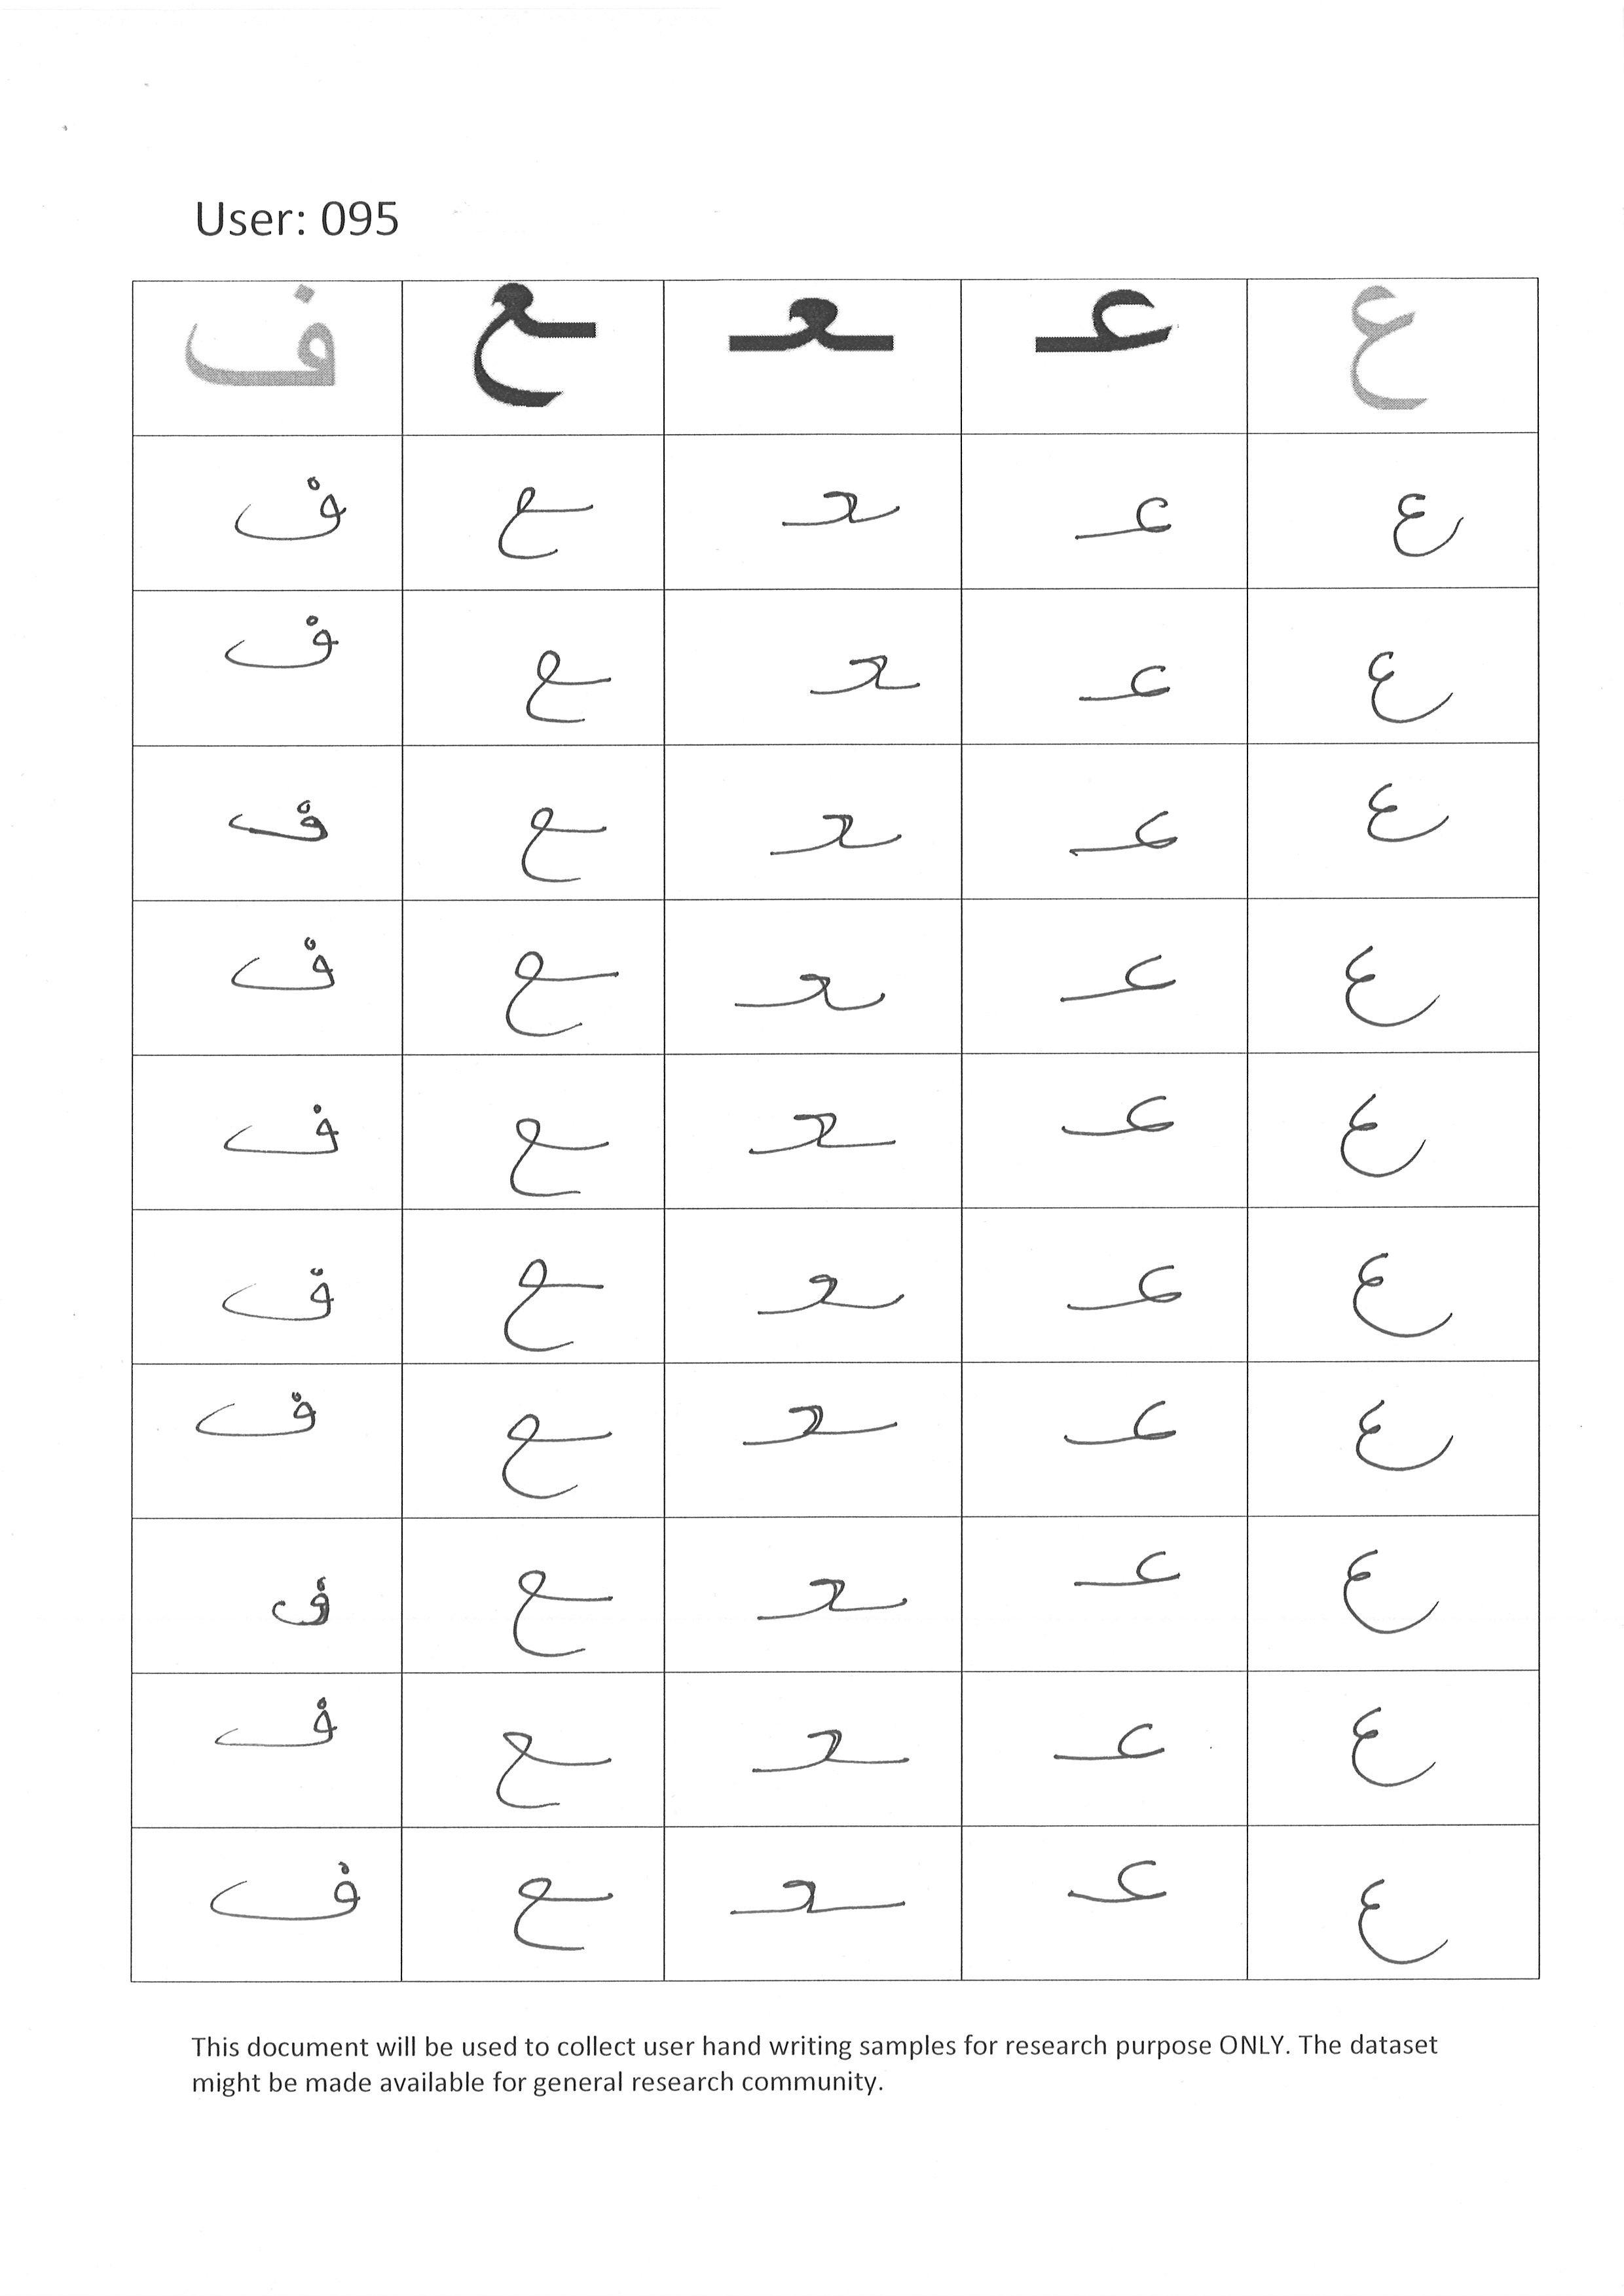 User: 095
ع عـ ـعـ ـع ف
ع عـ ـعـ ـع ف
ع عـ ـعـ ـع ف
ع عـ ـعـ ـع ف
ع عـ ـعـ ـع ف
ع عـ ـعـ ـع ف
ع عـ ـعـ ـع ف
ع عـ ـعـ ـع ف
ع عـ ـعـ ـع ف
ع عـ ـعـ ـع ف
ع عـ ـعـ ـع ف
This document will be used to collect user hand writing samples for research purpose ONLY. The dataset
might be made available for general research community.